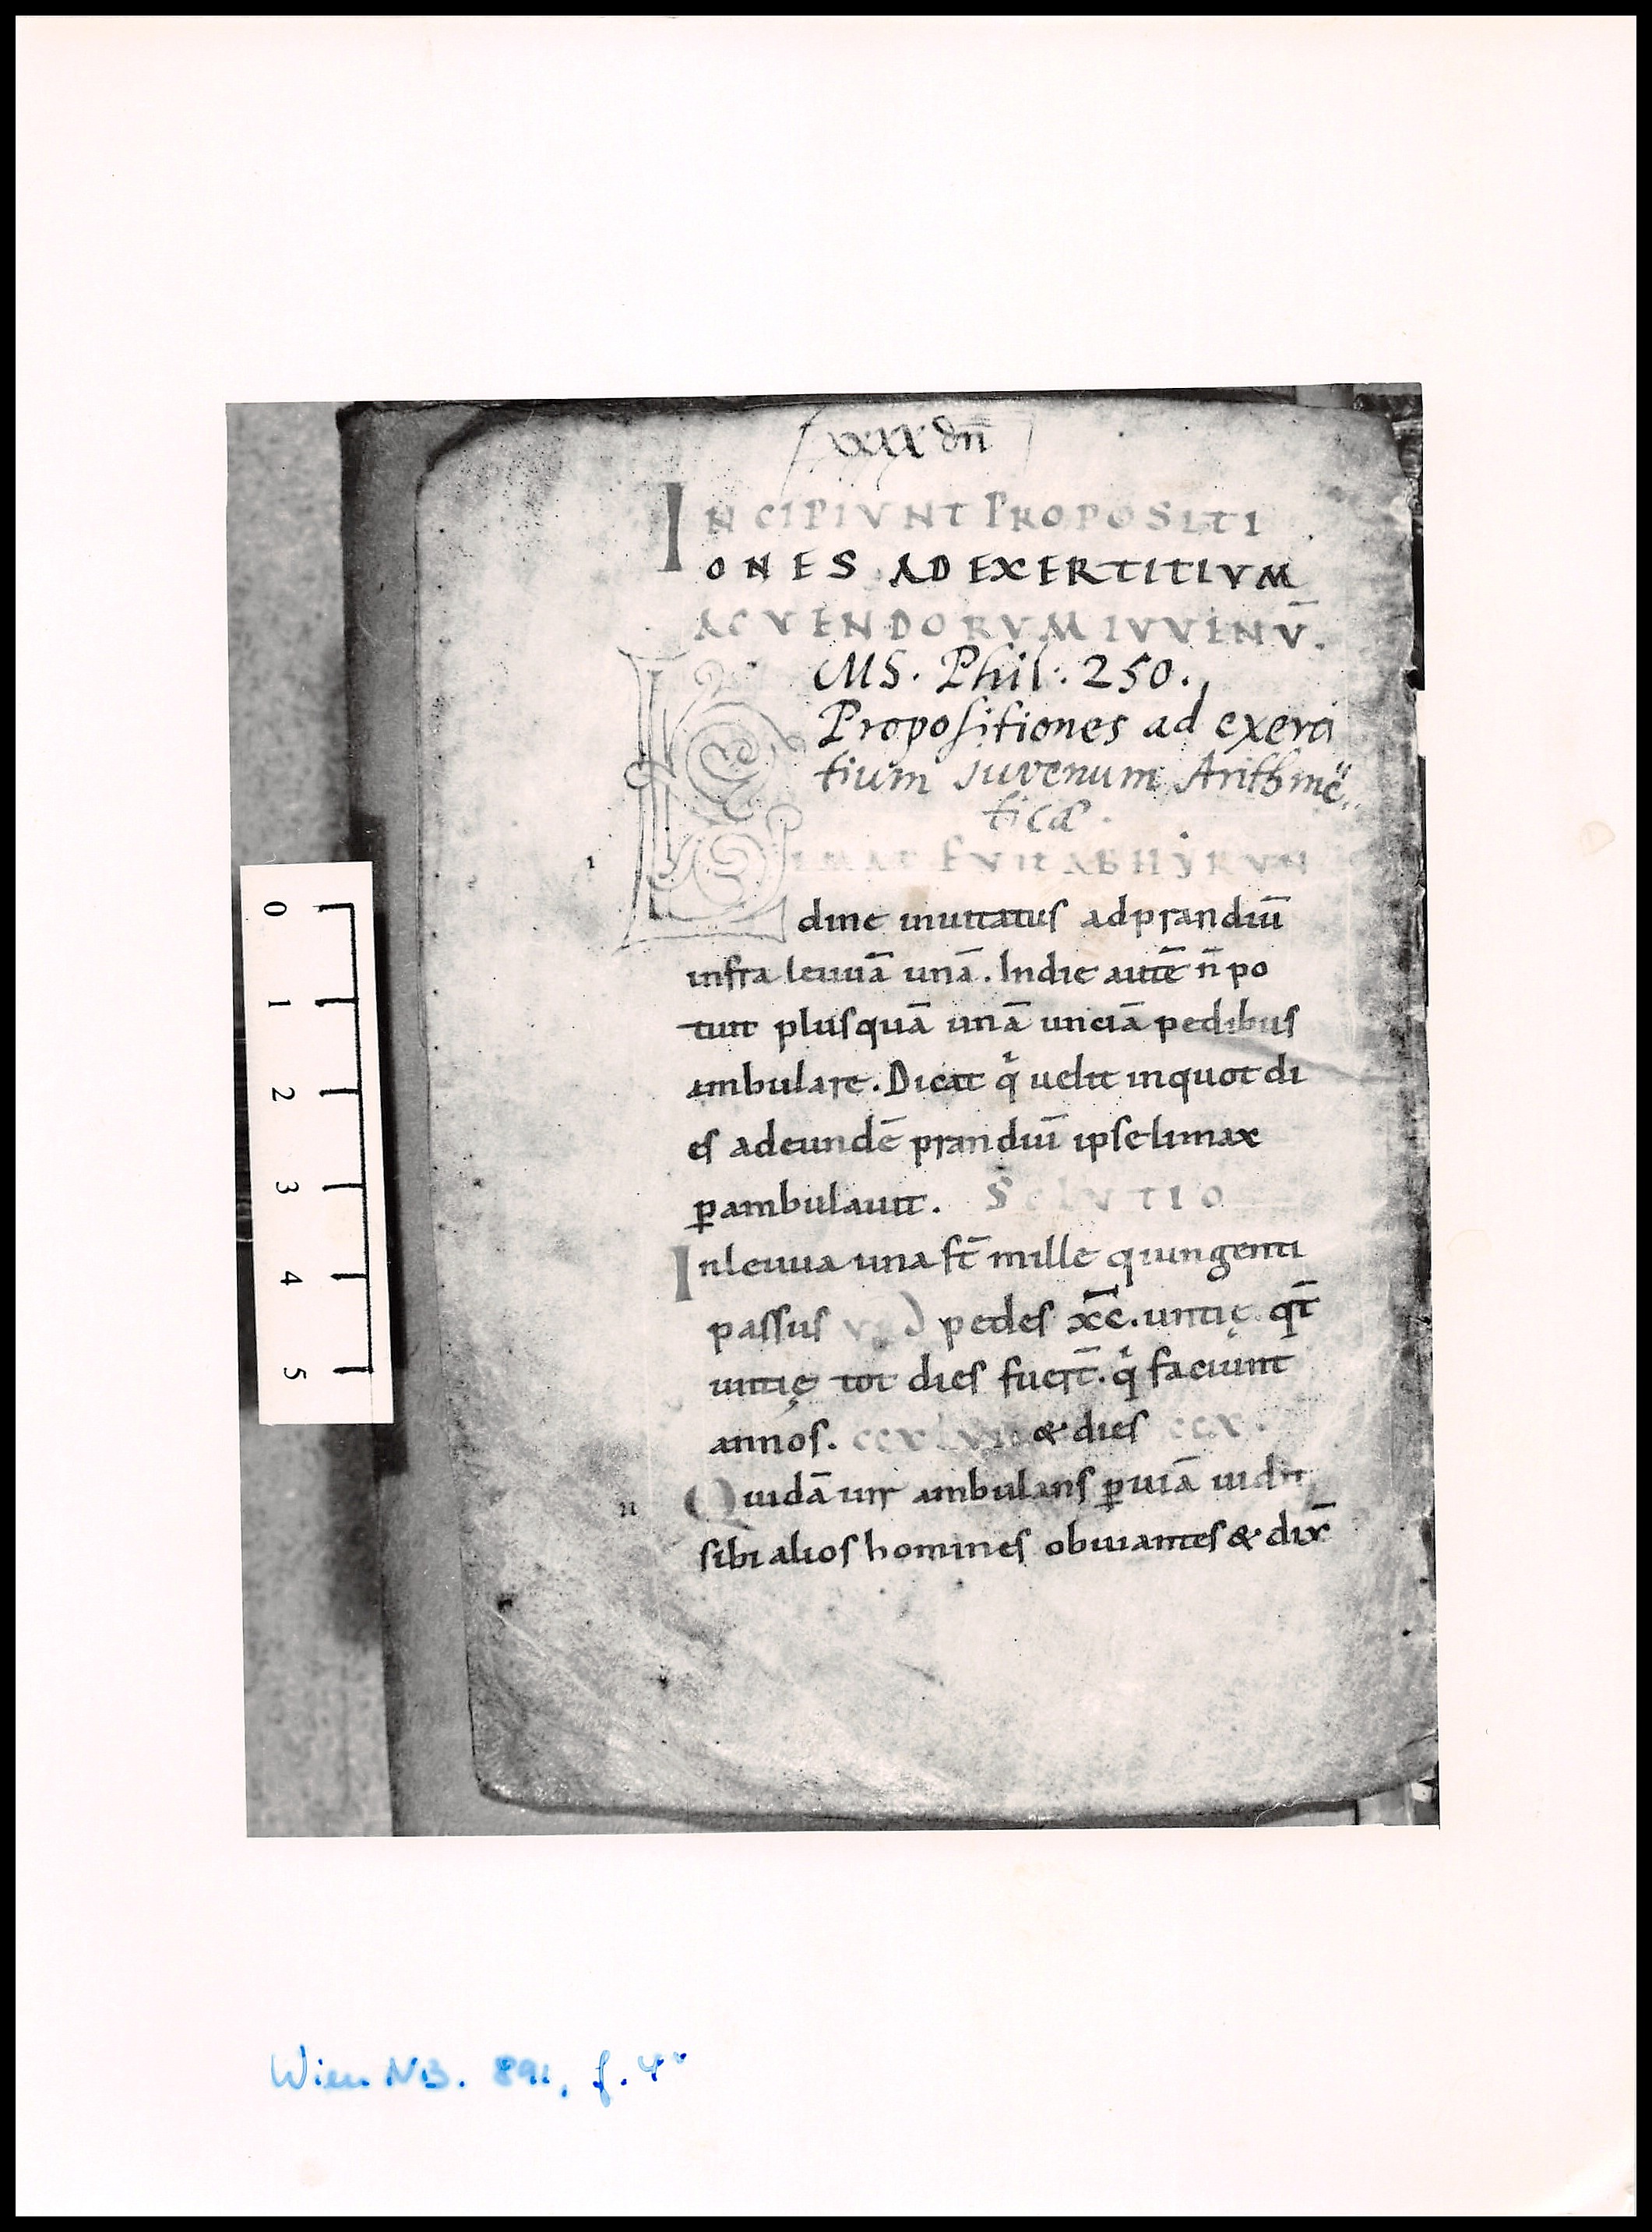 xxx dn̄
INCIPIVNT PROPOSITI
ONES AD EXERTITIVM
ACVENDORVM IVVENV̄.
MS. Phil: 250.
Propositiones ad exerci
tium juvenum Arithme..
ticæ.
I LIMAX FVIT AB HYRVN
dine inuitatus ad prandiū
infra leuuā unā. In die autē n̄ po
tuit plus quā unā unciā pedibus
ambulare. Dicat qͥ uelit in quot di
es ad eundē prandiū ipse limax
p̱ambulauit. SOLVTIO
In leuua una st̄ mille quingenti
passus pedes x̄c̄. untię. qt̄
untię tot dies fuer̄t. qͥ faciunt
annos. ccxlvi & dies ccx.
II Quidā uir ambulans p̱ uiā uidit
sibi alios homines obuiantes & dix̄
0
1
2
3
4
5
Wien NB. 891, f. 4v